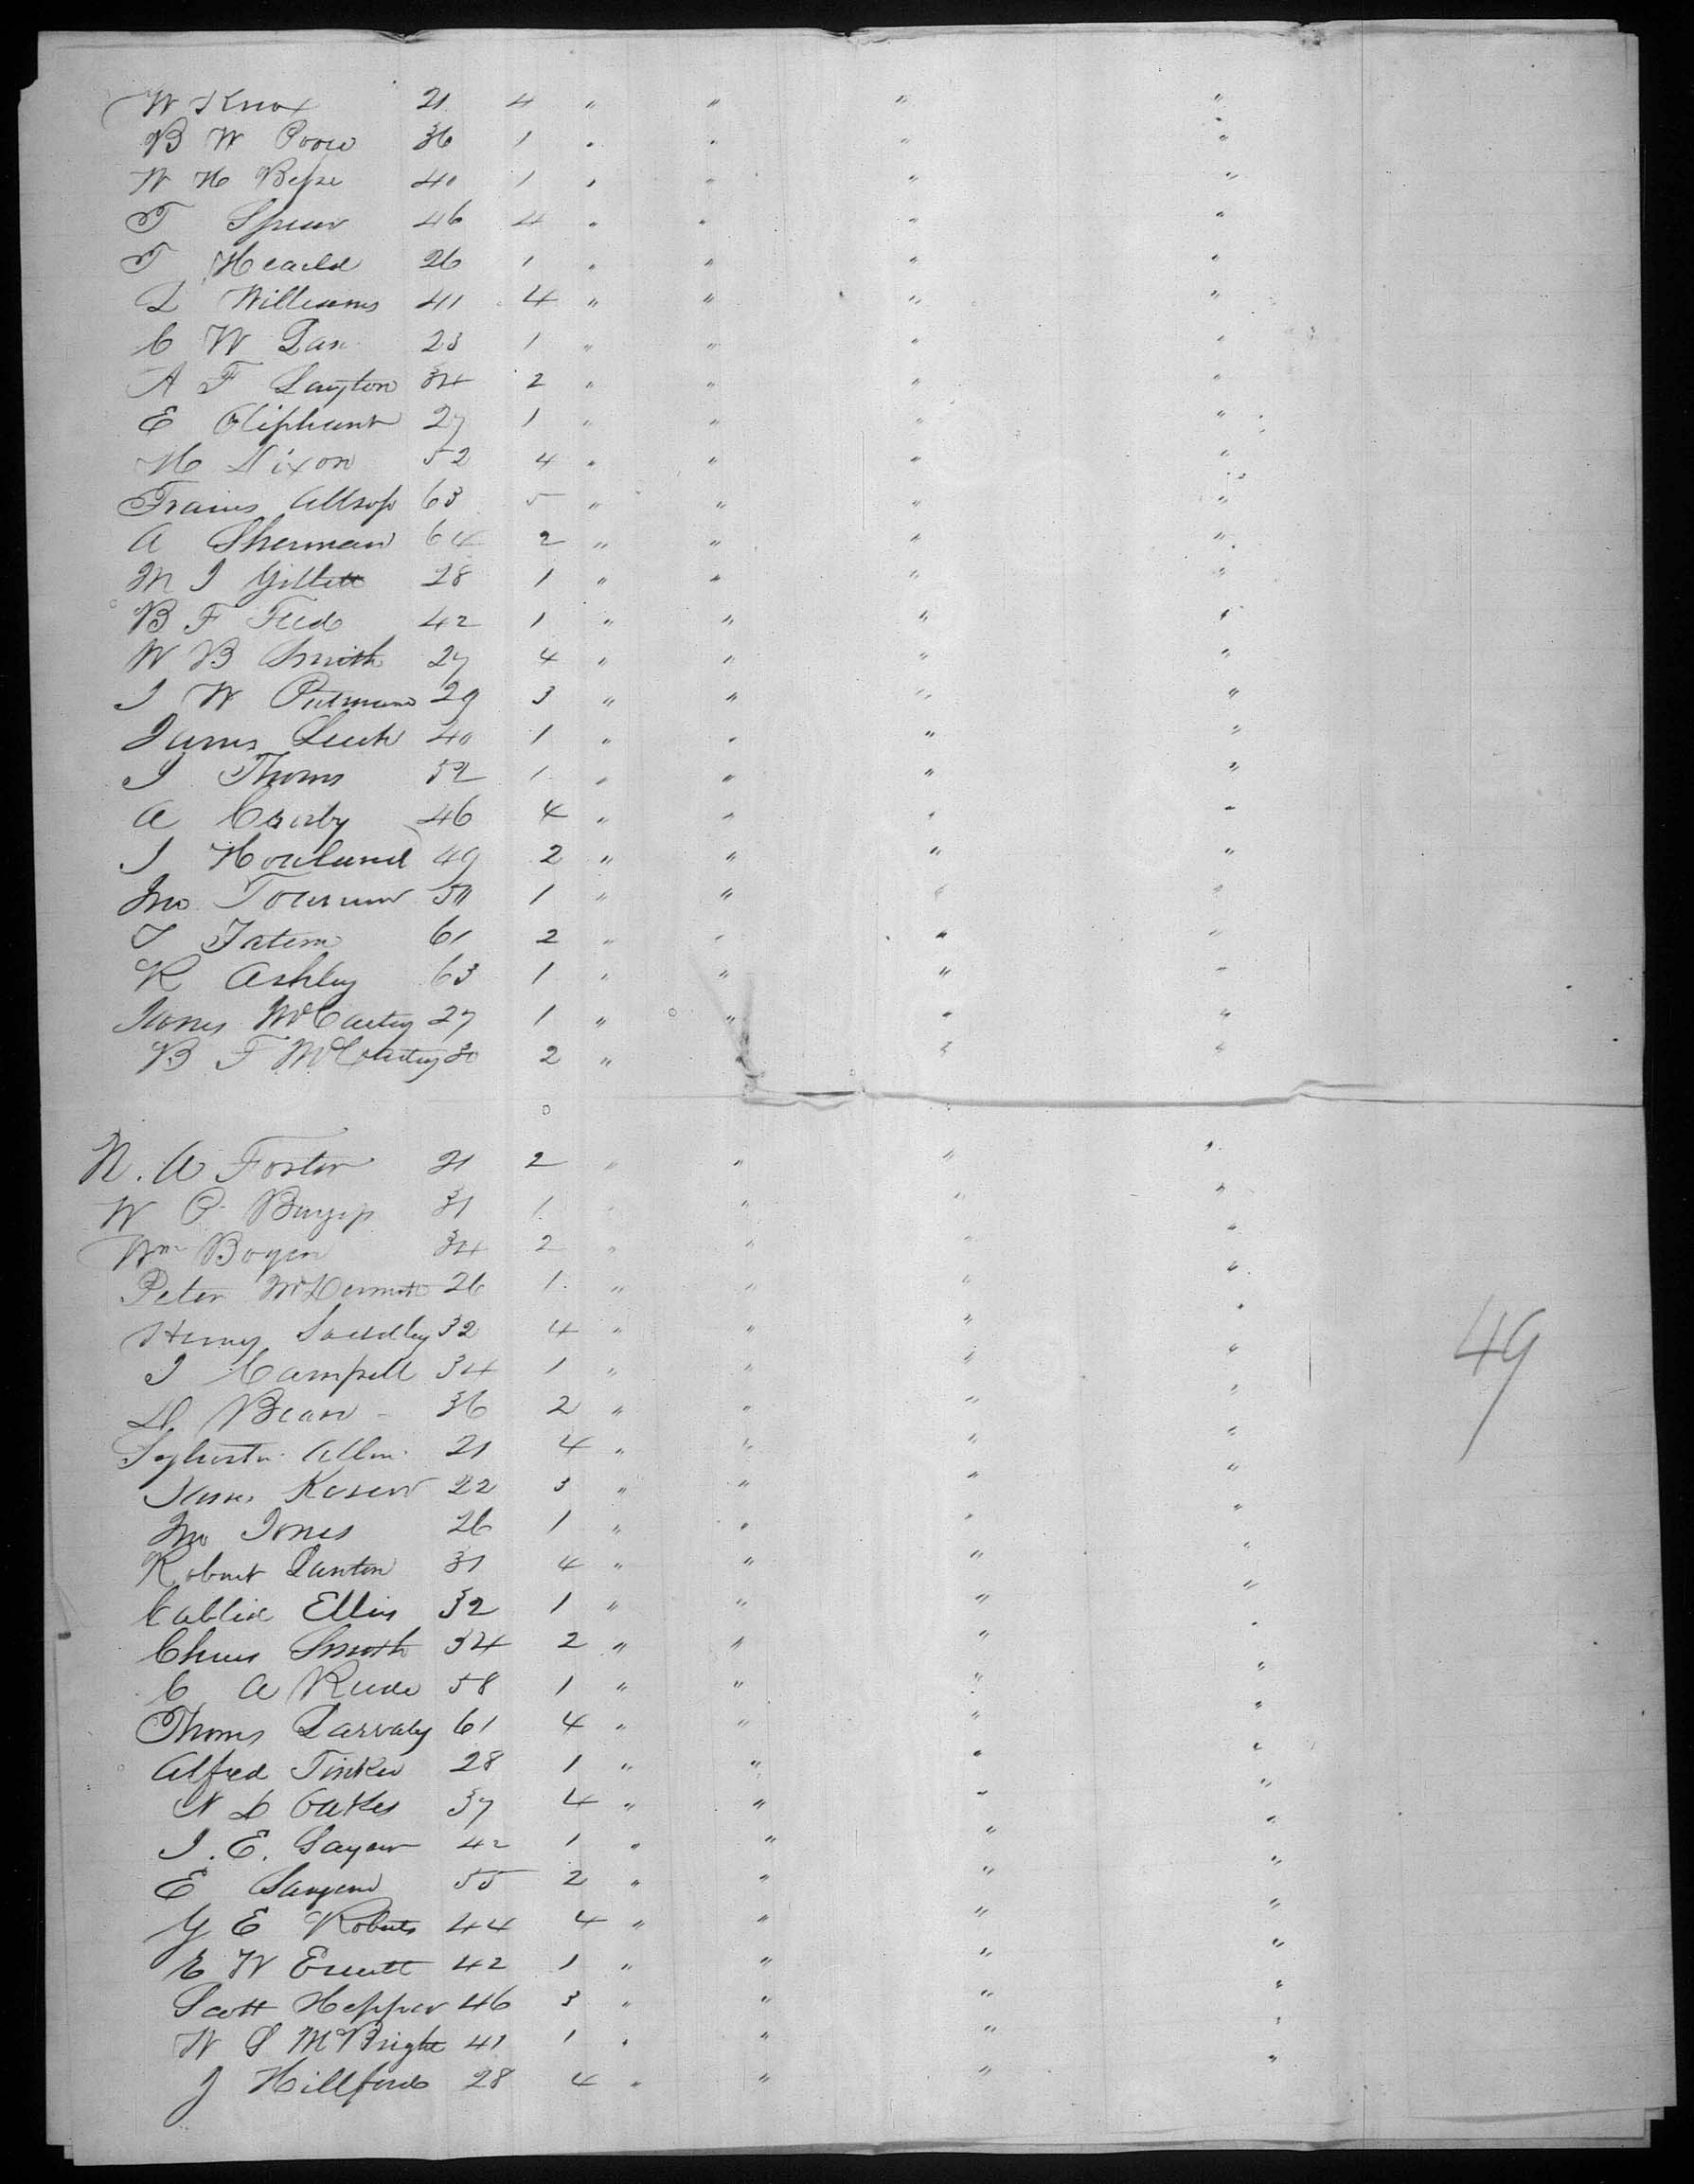 W Knox 21 4 " " " "
B W Poore 36 1 " " " "
W H 40 1 " " " "
T 46 4 " " " "
T Heald 26 1 " " " "
L Williams 41 4 " " " "
C W 23 1 " " " "
A F Layton 34 2 " " " "
E Oliphant 27 1 " " " "
H Dixon 52 4 " " " "
Francis Allsop 63 5 " " " "
A Sherman 64 2 " " " "
M J Gillett 28 1 " " " "
B F 42 1 " " " "
W B Smith 27 4 " " " "
J W Putnam 29 3 " " " "
James Leech 40 1 " " " "
J Thoms 52 1 " " " "
A Crosby 46 4 " " " "
J Howland 49 2 " " " "
Jno 50 1 " " " "
T Tatem 61 2 " " " "
R Ashley 63 1 " " " "
James McCartey 27 1 " " " "
B F McCartey 30 2 " " " "
N. A Foster 21 2 " " " "
W P 31 1 " " " "
Wm Boyen 34 2 " " " "
Peter McDermott 26 1 " " " "
Henry 32 4 " " " "
J Campell 34 1 " " " "
D Bean 36 2 " " " "
Sylvester Allen 21 4 " " " "
James 22 3 " " " "
Jno Jones 26 1 " " " "
Robert Lanton 31 4 " " " "
Ellis 32 1 " " " "
Chas Smith 34 2 " " " "
C A 58 1 " " " "
Thoms 61 4 " " " "
Alfred Tinker 28 1 " " " "
N D Oakes 37 4 " " " "
J. E. 42 1 " " " "
E 55 2 " " " "
G E Roberts 44 4 " " " "
E W 42 1 " " " "
Scott 46 3 " " " "
W S McBright 41 1 " " " "
J Hillford 28 4 " " "
49